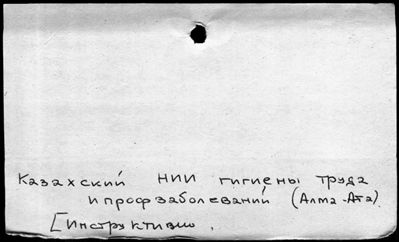 Казахский НИИ гигиены труда
и профзаболеваний (Алма-Ата)
[Инструктивно.